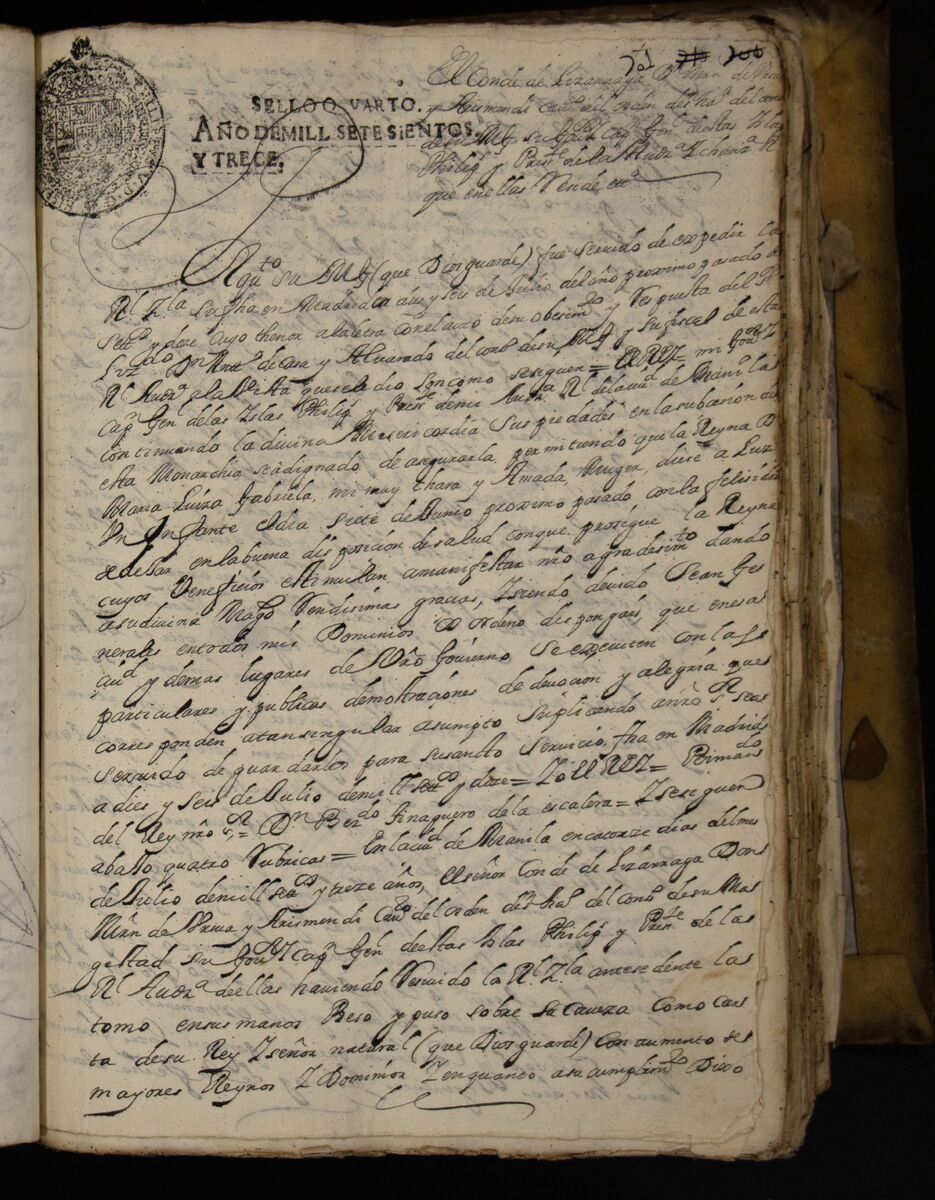 701 106
El Conde de Lizarraga Dn Mrn de Vrsua
y Arismendi Cauo del orden de Sntho del conso
de su Mg su Gour Capn Genl destas Islas
Philips y Preste de la Audza y chanza Rl
que en ellas Reside etta
SELLO QVARTO.
AÑO DE MILL SETESIENTOS,
Y TRECE.
su Mg (que Dios guarde) fue seruido de expedir la
Rl Zla su fha en Madrid a dies y seis de Julio del año proximo pasado de
setos y doze cuyo thenor a la letra con el auto de su obedecimto y Respuesta del Sr
Lizdo Dn Antto de Casa y Aluarado del conso de su Mg y su fiscal de esta
Rl Audza a la Vista que se le dio son como se siguen = El REY = mi Gour y
Capn Genl de las Islas Philips y Preste de mi Audza Rl de la ciud de Manila
continuando la diuina Misericordia sus piedades en la subcesion de
esta Monarchia se a dignado de asegurarla, permitiendo que la Reyna Da
Maria Luiza Gabriela, mi muy chara y Amada Muger, diese a Luz
Vn Infante el dia siete de Junio proximo pasado con la felisidad
de dejar en la buena disposicion de salud con que prosigue la Reyna
cuyos Beneficios estimulan a manifestar mio agradesimto dando
a su diuina Magd Rendisimas gracias, y siendo deuido sean Ge
nerales en todos mis Dominios os ordeno dispongais, que en esa
ciud y demas lugares de Vro Gouierno se executen con las
particulares y publicas demostraciones de deuocion y alegria que
corresponden a tan singular asumpto suplicando a nro Sr seas
seruido de guardarlos para su santo seruicio, fha en Madrid
a dies y seis de Julio de mill setos y doze = Yo el REY = Por mando
del Rey nro Sr = Dn Berdo Tinaguero de la escalera = y se siguen
abajo quatro Rubricas = En la ciud de Manila en catorze dias del mes
de Julio de mill setos y treze años, el señor Conde de Lizarraga Don
Mrn de Vrsua y Arismendi Cauo del orden de Sntho del conso de su Ma
gestad su Gour y Capn Genl de estas Islas Philips y Preste de la
Rl Audza de ellas hauiendo Reseuido la Rl Zla antesedente la
tomo en sus manos Beso y puso sobre su caueza como car
ta de su Rey y señor natural (que Dios guarde) con aumento de
mayores Reynos y Dominios y en quanto a su cumplimto Dixo